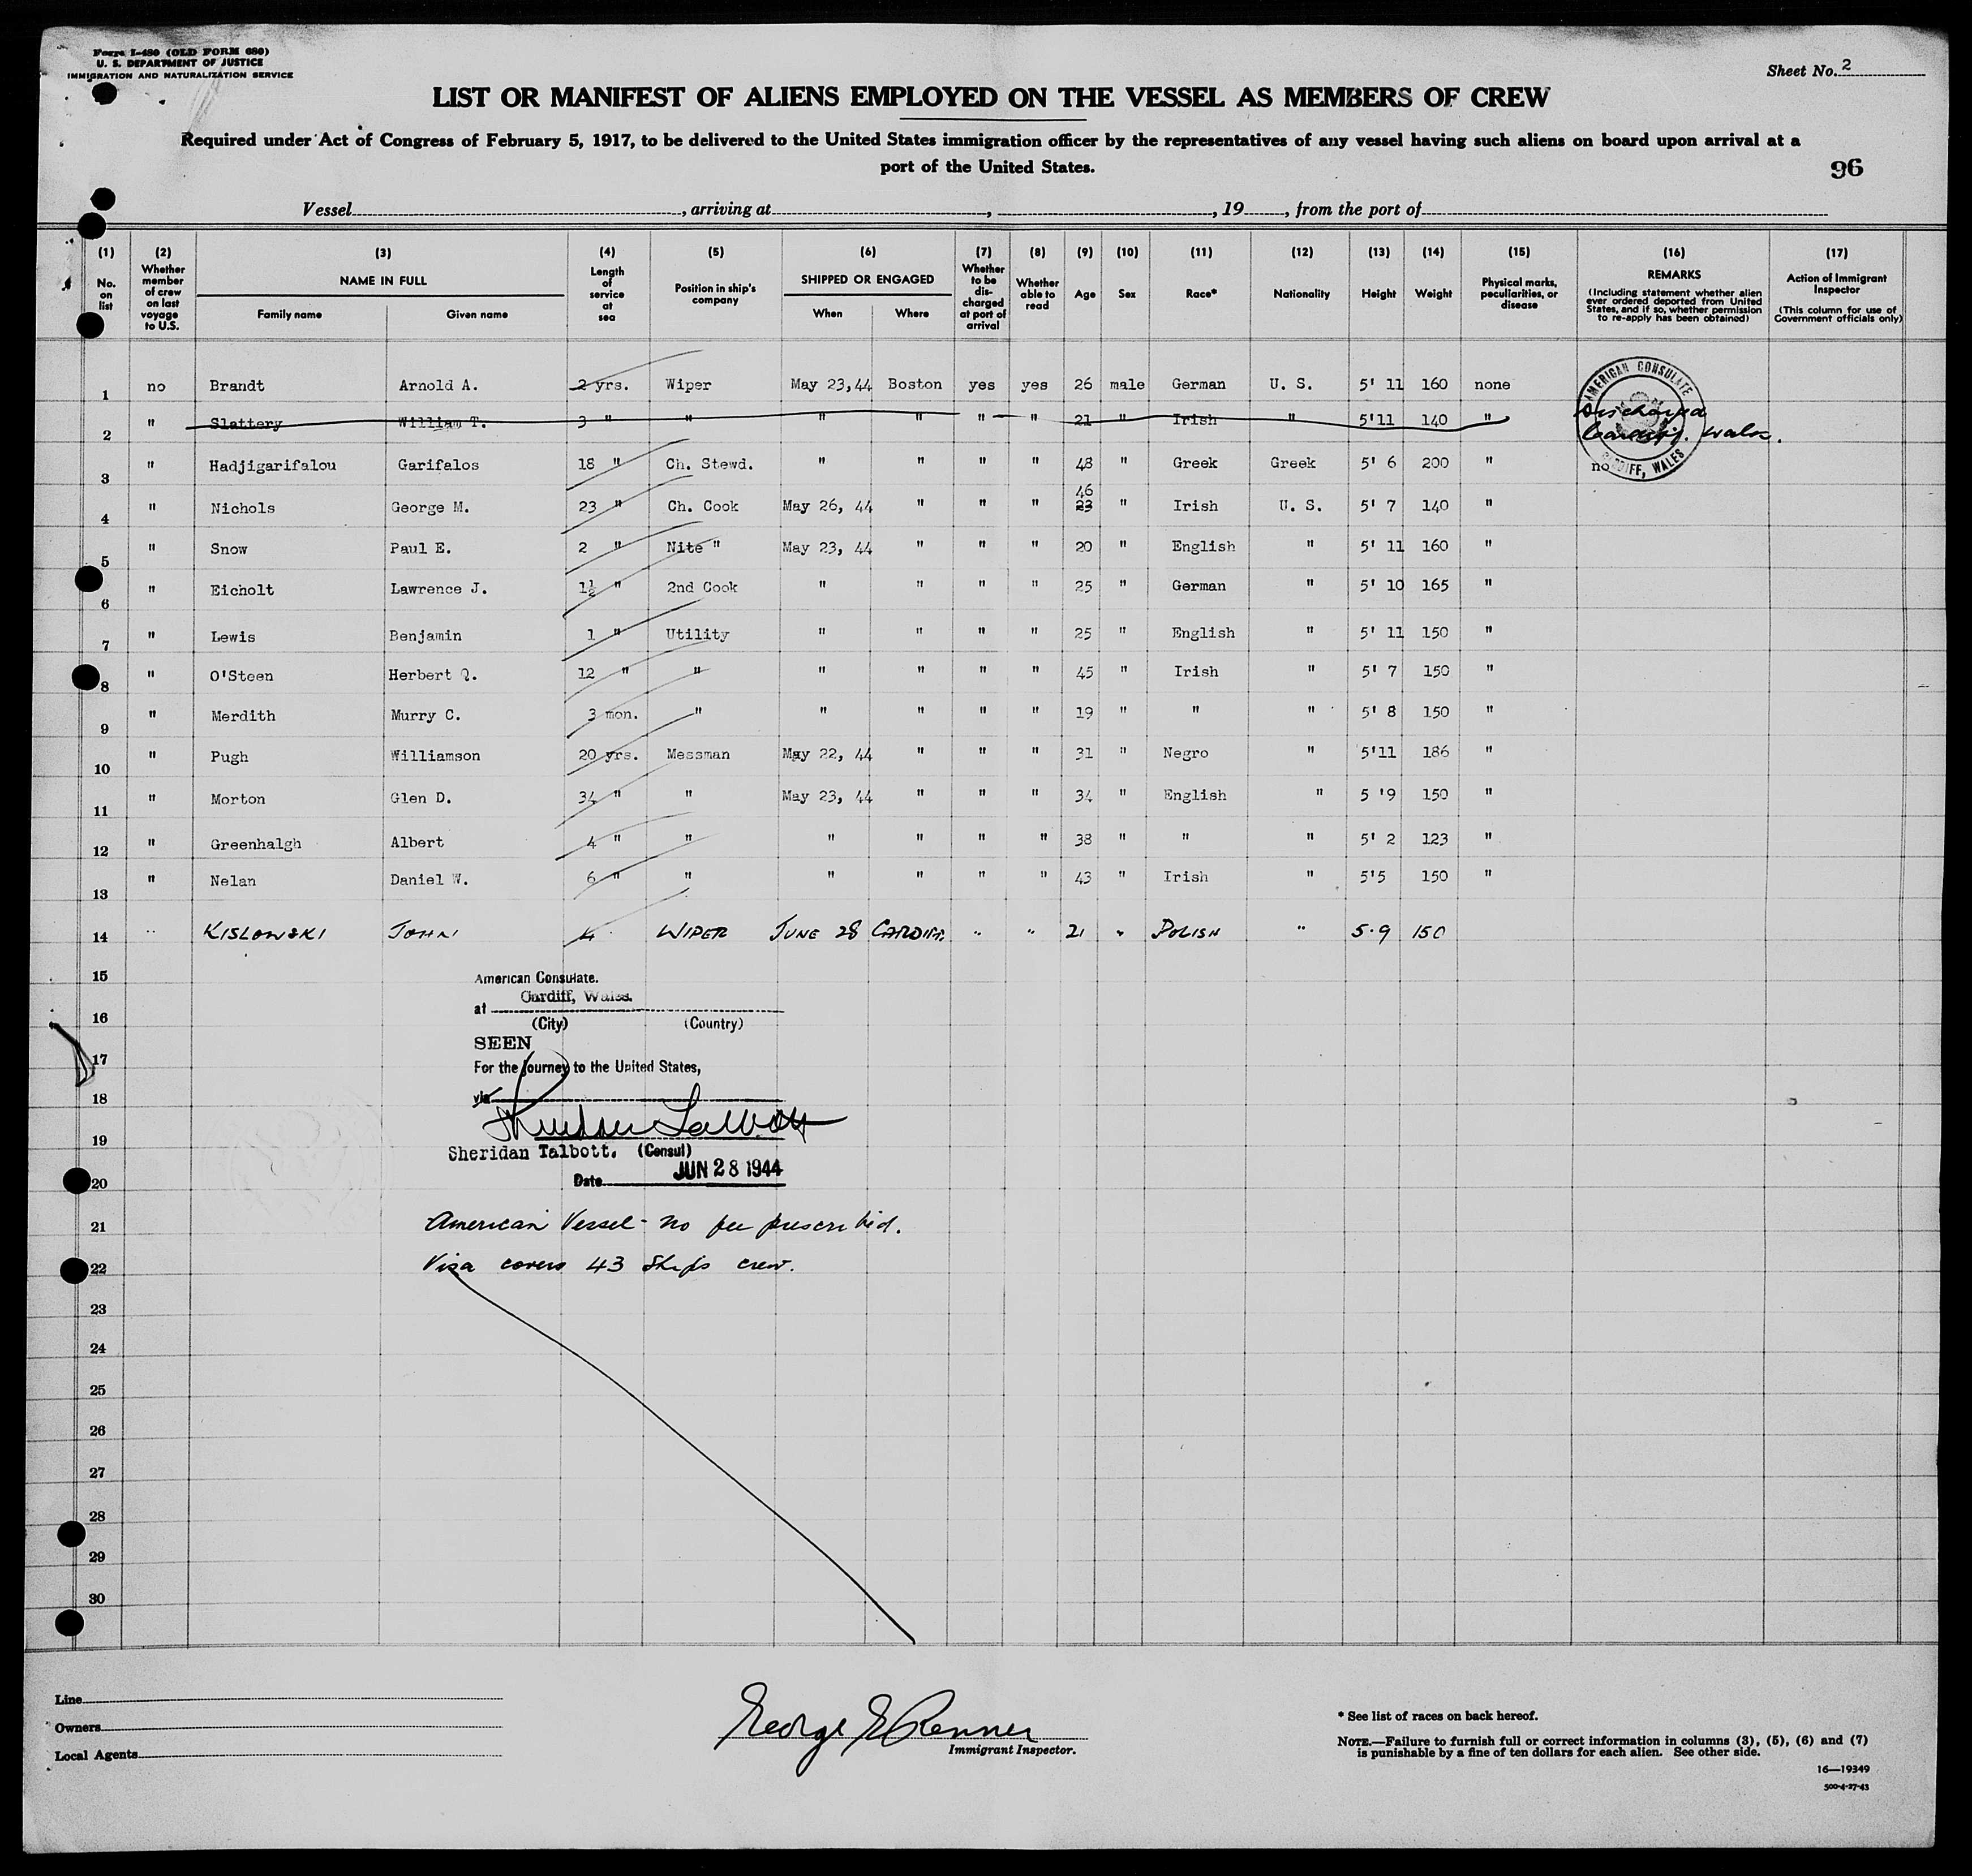 Form I-480 (OLD FORM 680)
U. S. DEPARTMENT OF JUSTICE
IMMIGRATION AND NATURALIZATION SERVICE
Sheet No. 2
LIST OR MANIFEST OF ALIENS EMPLOYED ON THE VESSEL AS MEMBERS OF CREW
Required under Act of Congress of February 5, 1917, to be delivered to the United States immigration officer by the representatives of any vessel having such aliens on board upon arrival at a
port of the United States.
96
Vessel , arriving at , , 19 , from the port of
(1) No. on list
(2) Whether member of crew on last voyage to U.S.
(3) NAME IN FULL Family name Given name
(4) Length of service at sea
(5) Position in ship's company
(6) SHIPPED OR ENGAGED When Where
(7) Whether to be discharged at port of arrival
(8) Whether able to read
(9) Age
(10) Sex
(11) Race*
(12) Nationality
(13) Height
(14) Weight
(15) Physical marks, peculiarities, or disease
(16) REMARKS (Including statement whether alien ever ordered deported from United States, and if so, whether permission to re-apply has been obtained)
(17) Action of Immigrant Inspector (This column for use of Government officials only)
1 no Brandt Arnold A. 2 yrs. Wiper May 23,44 Boston yes yes 26 male German U. S. 5' 11 160 none
AMERICAN CONSULATE CARDIFF, WALES
2 " Slattery William T. 3 " " " " " " 21 " Irish " 5'11 140 " Discharged Cardiff. Wales.
3 " Hadjigarifalou Garifalos 18 " Ch. Stewd. " " " " 48 " Greek Greek 5' 6 200 " no
4 " Nichols George M. 23 " Ch. Cook May 26, 44 " " " 46 23 " Irish U. S. 5' 7 140 "
5 " Snow Paul E. 2 " Nite " May 23, 44 " " " 20 " English " 5' 11 160 "
6 " Eicholt Lawrence J. 1½ " 2nd Cook " " " " 25 " German " 5' 10 165 "
7 " Lewis Benjamin 1 " Utility " " " " 25 " English " 5' 11 150 "
8 " O'Steen Herbert Q. 12 " " " " " " 45 " Irish " 5' 7 150 "
9 " Merdith Murry C. 3 mon. " " " " " 19 " " " 5' 8 150 "
10 " Pugh Williamson 20 yrs. Messman May 22, 44 " " " 31 " Negro " 5'11 186 "
11 " Morton Glen D. 34 " " May 23, 44 " " " 34 " English " 5 '9 150 "
12 " Greenhalgh Albert 4 " " " " " " 38 " " " 5' 2 123 "
13 " Nelan Daniel W. 6 " " " " " " 43 " Irish " 5'5 150 "
14 " KISLOWSKI JOHN 4 WIPER JUNE 28 CARDIFF. " " 21 " POLISH " 5.9 150
15
American Consulate.
at Cardiff, Wales.
16
(City) (Country)
SEEN
17
For the journey to the United States,
18
via
19
Sheridan Talbott. (Consul)
Date JUN 28 1944
20
21
American Vessel - no fee prescribed.
22
Visa covers 43 Ships crew.
23
24
25
26
27
28
29
30
Line
Owners
Local Agents
George E Renner
Immigrant Inspector.
* See list of races on back hereof.
NOTE.—Failure to furnish full or correct information in columns (3), (5), (6) and (7)
is punishable by a fine of ten dollars for each alien. See other side.
16—19349
500-4-27-43